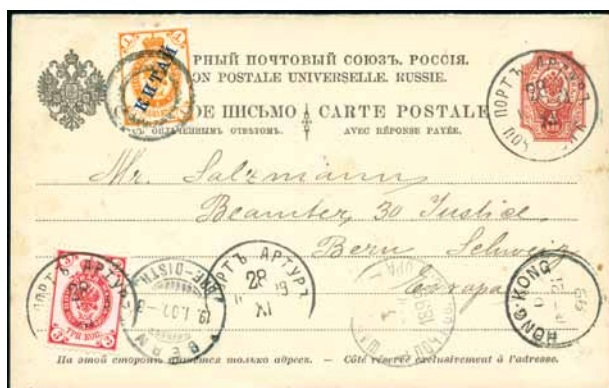 РНЫЙ ПОЧТОВЫЙ СОЮЗЪ. РОССІЯ.
ON POSTALE UNIVERSELLE. RUSSIE.
ОЕ ПИСЬМО CARTE POSTALE
ОПЛАЧЕННЫМЪ ОТВѢТОМЪ. AVEC RÉPONSE PAYÉE.
КИТАЙ
ПОРТЪ АРТУРЪ
28
XI
Mr. Salzmann
Beamter, 30 Justice
Bern Schweiz
Европа
ПОРТЪ АРТУРЪ
28
ТРИ КОП.
BRF-DISTR.
BERN
ПОРТЪ АРТУРЪ
28
XI
HONG KONG
На этой сторонѣ пишется только адресъ. — Côté réservé exclusivement à l'adresse.